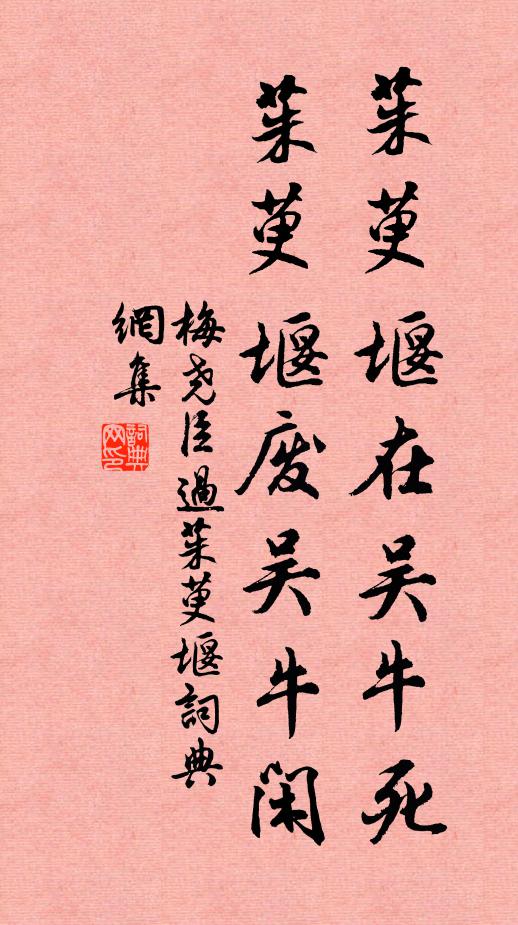 茱萸堰在吴牛死
茱萸堰废吴牛闲
梅尧臣過茱萸堰詞典
網集
詞典网印